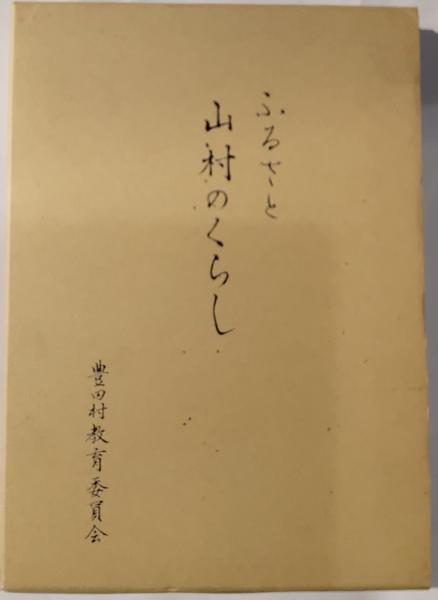 ふるさと
山村のくらし
豊田村教育委員会